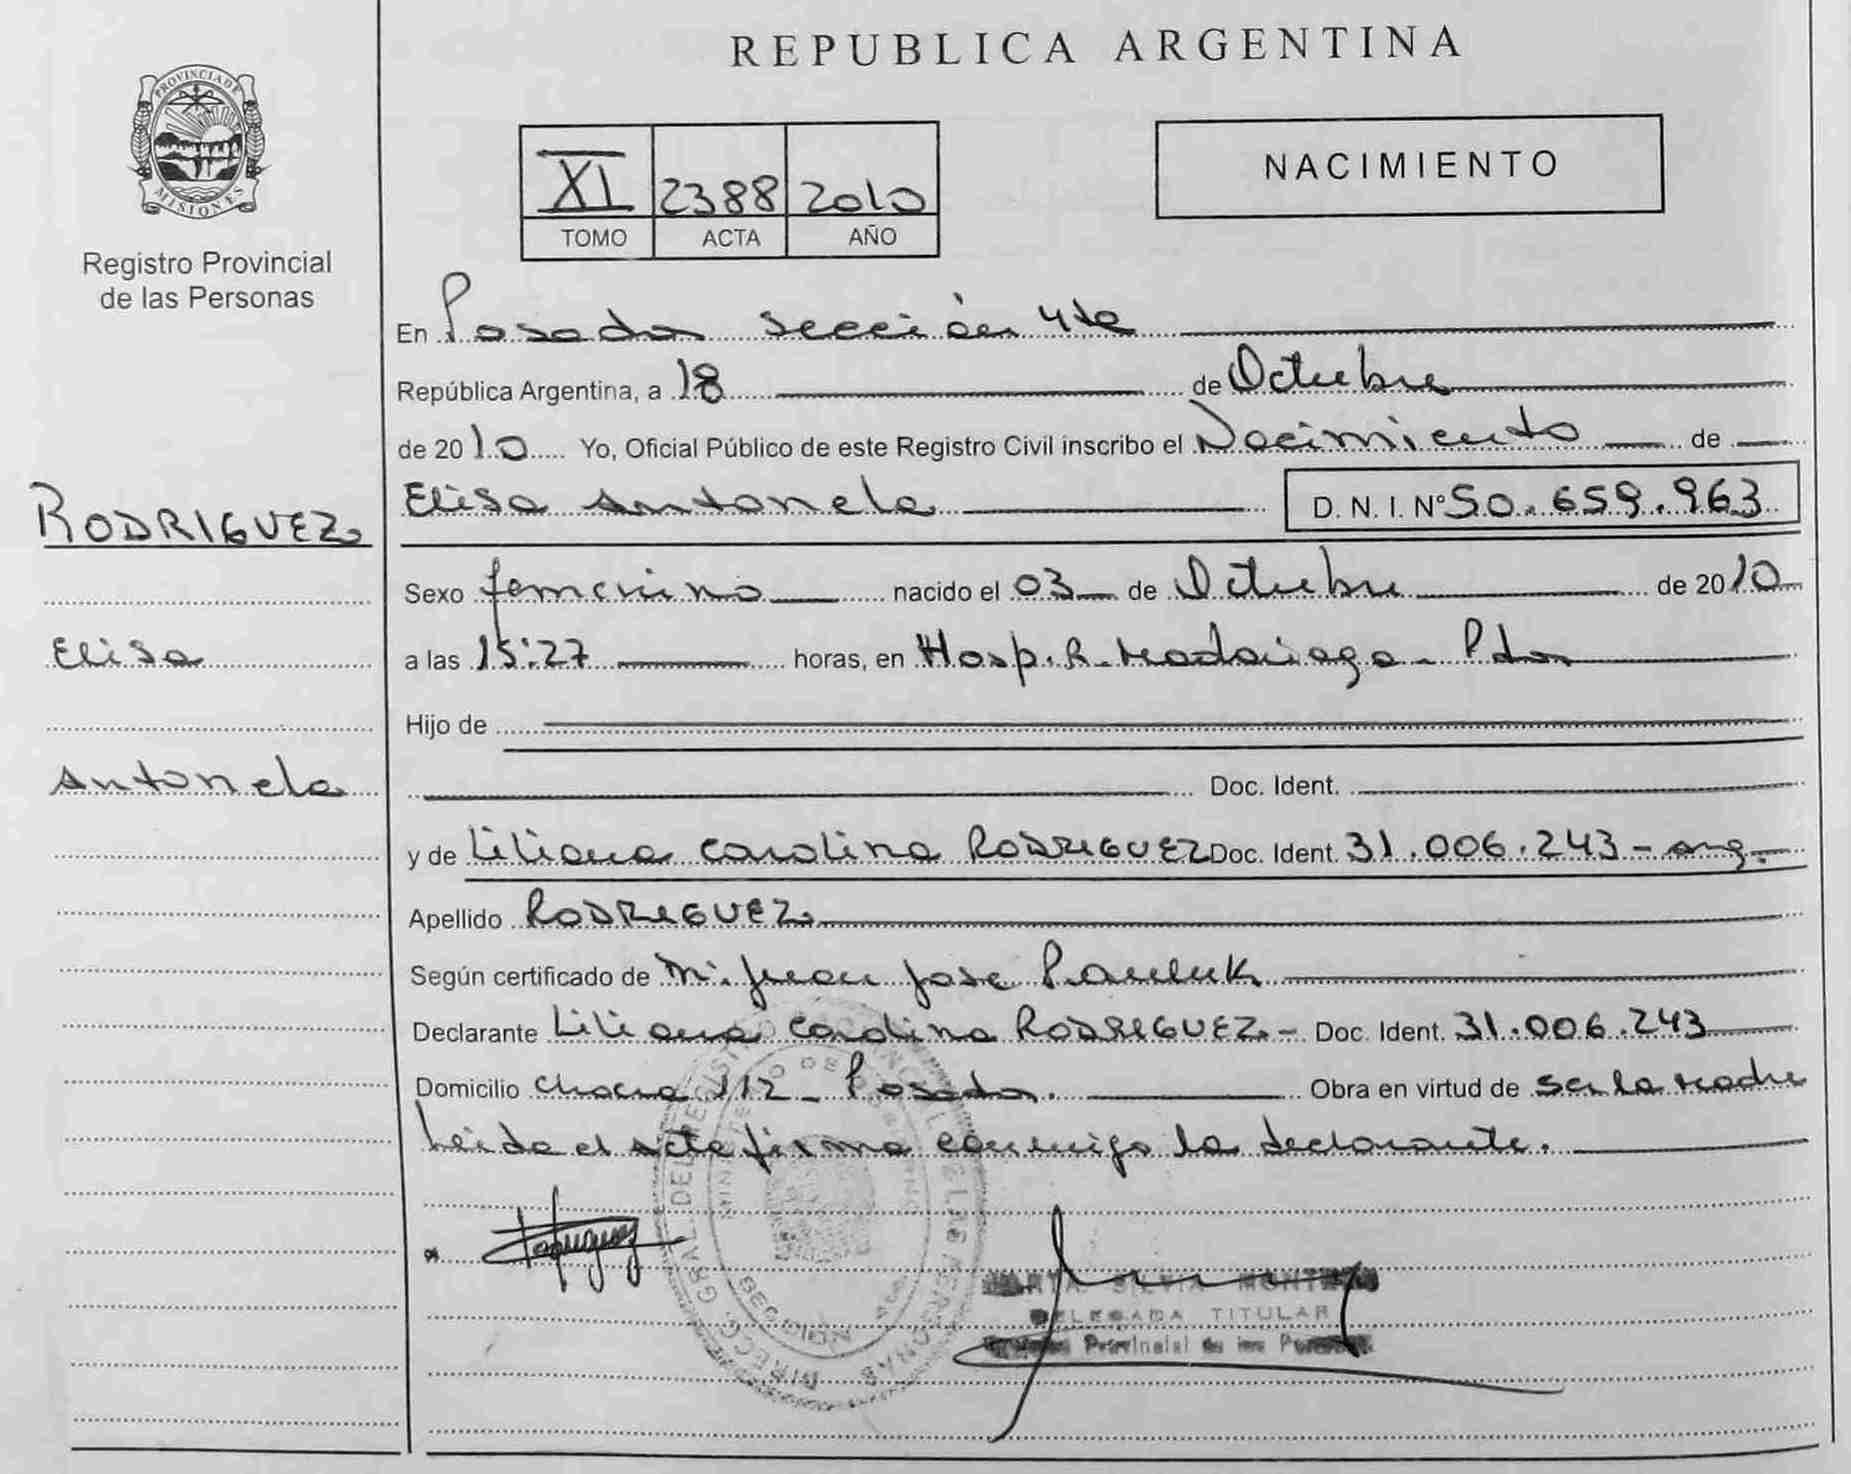 REPUBLICA ARGENTINA
PROVINCIA DE
MISIONES
Registro Provincial
de las Personas
XI 2388 2010
TOMO ACTA AÑO
NACIMIENTO
En Posadas sección 4ta
República Argentina, a 18 de Octubre
de 2010 Yo, Oficial Público de este Registro Civil inscribo el Nacimiento de
RODRIGUEZ
Elisa Antonela D. N. I. Nº 50.659.963
Sexo femenino nacido el 03 de Octubre de 2010
Elisa
a las 15:27 horas, en Hosp. R. Madariaga - Pdas
Hijo de
Antonela
Doc. Ident.
y de Liliana Carolina RODRIGUEZ Doc. Ident. 31.006.243 - arg.
Apellido RODRIGUEZ
Según certificado de Juan Jose
Declarante Liliana Carolina RODRIGUEZ - Doc. Ident. 31.006.243
Domicilio Chacra 112 - Posadas. Obra en virtud de ser la madre
Leida el acta firma conmigo la declarante.
SILVIA
DELEGADA TITULAR
Provincial de las